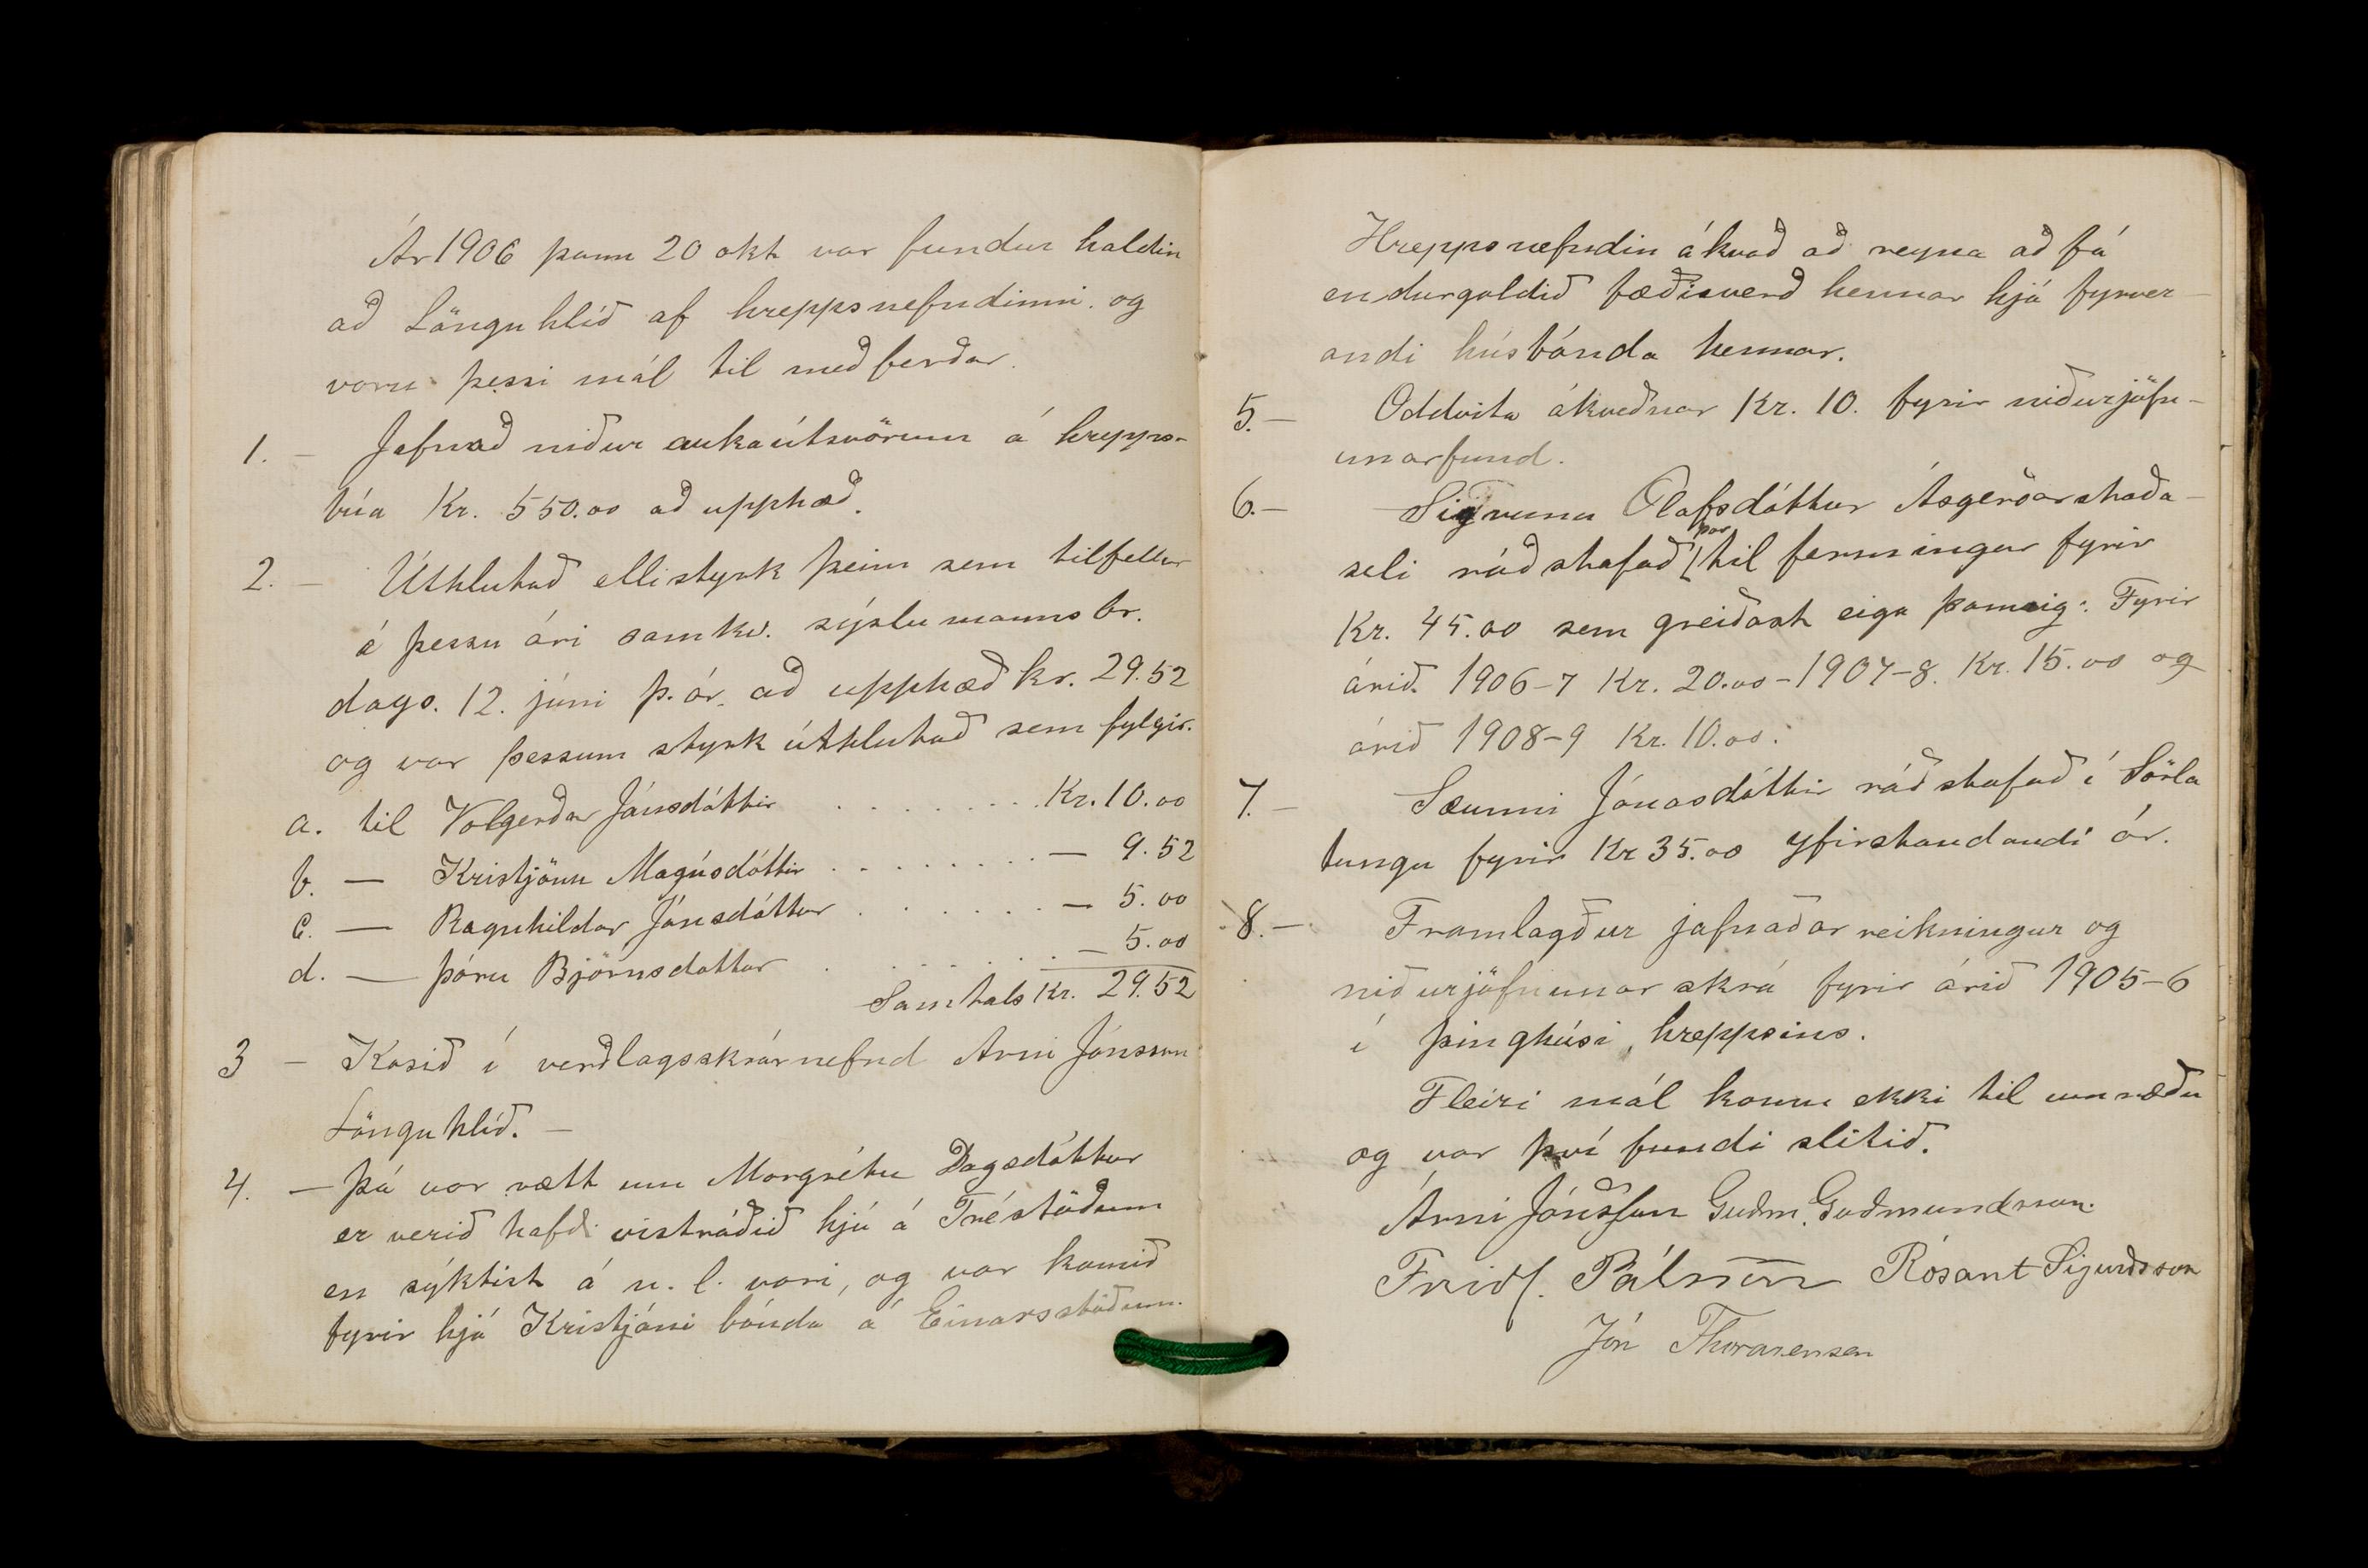 Ár 1906 þann 20 okt var fundur haldin
að Lönguhlíð af hreppsnefndinni og
voru þessi mál til meðferðar.
1. – Jafnað niður aukaútsvörum á hrepps-
búa Kr. 550.00 að upphæð.
2. – Úthlutað ellistyrk þeim sem tilfellur
á þessu ári samkv. sýslumannsbr.
dags. 12. júni þ. ár. að upphæð kr. 29.52
og var þessum styrk úthlutað sem fylgir.
a. til Valgerðar Jónsdóttir . . . . . . . . Kr. 10.00
b. — Kristjönu Magúsdóttir . . . . . . . . . — 9.52
c. — Ragnhildar Jónsdóttur . . . . . . . — 5.00
d. — Þóru Björnsdottur . . . . . . . — 5.00
Samtals Kr. 29.52
3 – Kosið í verðlagsskrárnefnd Arni Jónsson
Lönguhlíð. –
4. – Þá var rætt um Margrétu Dagsdóttur
er verið hafði vistráðið hjú á Tréstöðum
en sýktist á n. l. vori, og var komið
fyrir hjá Kristjáni bónda á Einarsstöðum.
Hreppsnefndin ákvað að reyna að fá
endurgoldið fæðisverð hennar hjá fyrver-
andi húsbónda hennar.
5. – Oddvita ákveðnar Kr. 10. fyrir niðurjöfn-
unarfund.
6. – Sigrunu Ólafsdóttur Ásgerðarstaða-
seli ráðstafað þar til fermingar fyrir
Kr. 45.00 sem greiðast eiga þannig: Fyrir
árið. 1906–7 Kr. 20.00 – 1907–8. Kr. 15.00 og
árið 1908–9 Kr. 10.00.
7. – Sæunni Jónasdóttir ráðstafað í Sörla
tungu fyrir Kr 35.00 yfirstandandi ár.
8. – Framlagður jafnaðarreikningur og
niðurjöfnunarskrá fyrir árið 1905–6
í þinghúsi hreppsins.
Fleiri mál komu ekki til umræðu
og var því fundi slitið.
Árni Jónsson Guðm. Guðmundsson.
Friðf. Pálsson Rósant Sigurðsson
Jón Thorarensen